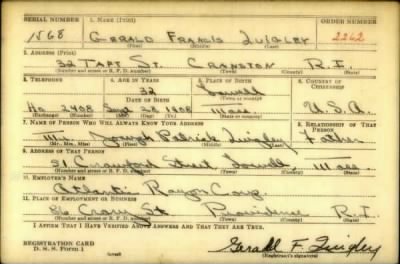 SERIAL NUMBER 1. NAME (Print) ORDER NUMBER
1568 GERALD FRANCIS QUIGLEY 2262
(First) (Middle) (Last)
2. ADDRESS (Print)
32 TAFT ST. CRANSTON R.I.
(Number and street or R. F. D. number) (Town) (County) (State)
3. TELEPHONE 4. AGE IN YEARS 5. PLACE OF BIRTH 6. COUNTRY OF CITIZENSHIP
32 Lowell
DATE OF BIRTH (Town or county)
Ho 2408 Sept 28, 1908 Mass. U.S.A.
(Exchange) (Number) (Mo.) (Day) (Yr.) (State or country)
7. NAME OF PERSON WHO WILL ALWAYS KNOW YOUR ADDRESS 8. RELATIONSHIP OF THAT PERSON
Mr. Patrick Quigley Father
(Mr., Mrs., Miss) (First) (Middle) (Last)
9. ADDRESS OF THAT PERSON
Street Lowell, Mass.
(Number and street or R. F. D. number) (Town) (County) (State)
10. EMPLOYER'S NAME
Atlantic Rayon Corp.
11. PLACE OF EMPLOYMENT OR BUSINESS
St Providence R.I.
(Number and street or R. F. D. number) (Town) (County) (State)
I AFFIRM THAT I HAVE VERIFIED ABOVE ANSWERS AND THAT THEY ARE TRUE.
REGISTRATION CARD
D. S. S. Form 1 Gerald F. Quigley
(Registrant's signature)